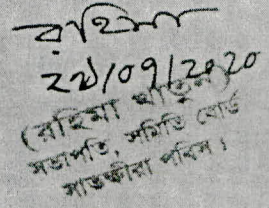 রহিমা
২২/০৭/২০২০
(রহিমা খাতুন)
সভাপতি, সমিতি বোর্ড
সাতক্ষীরা পবিস।